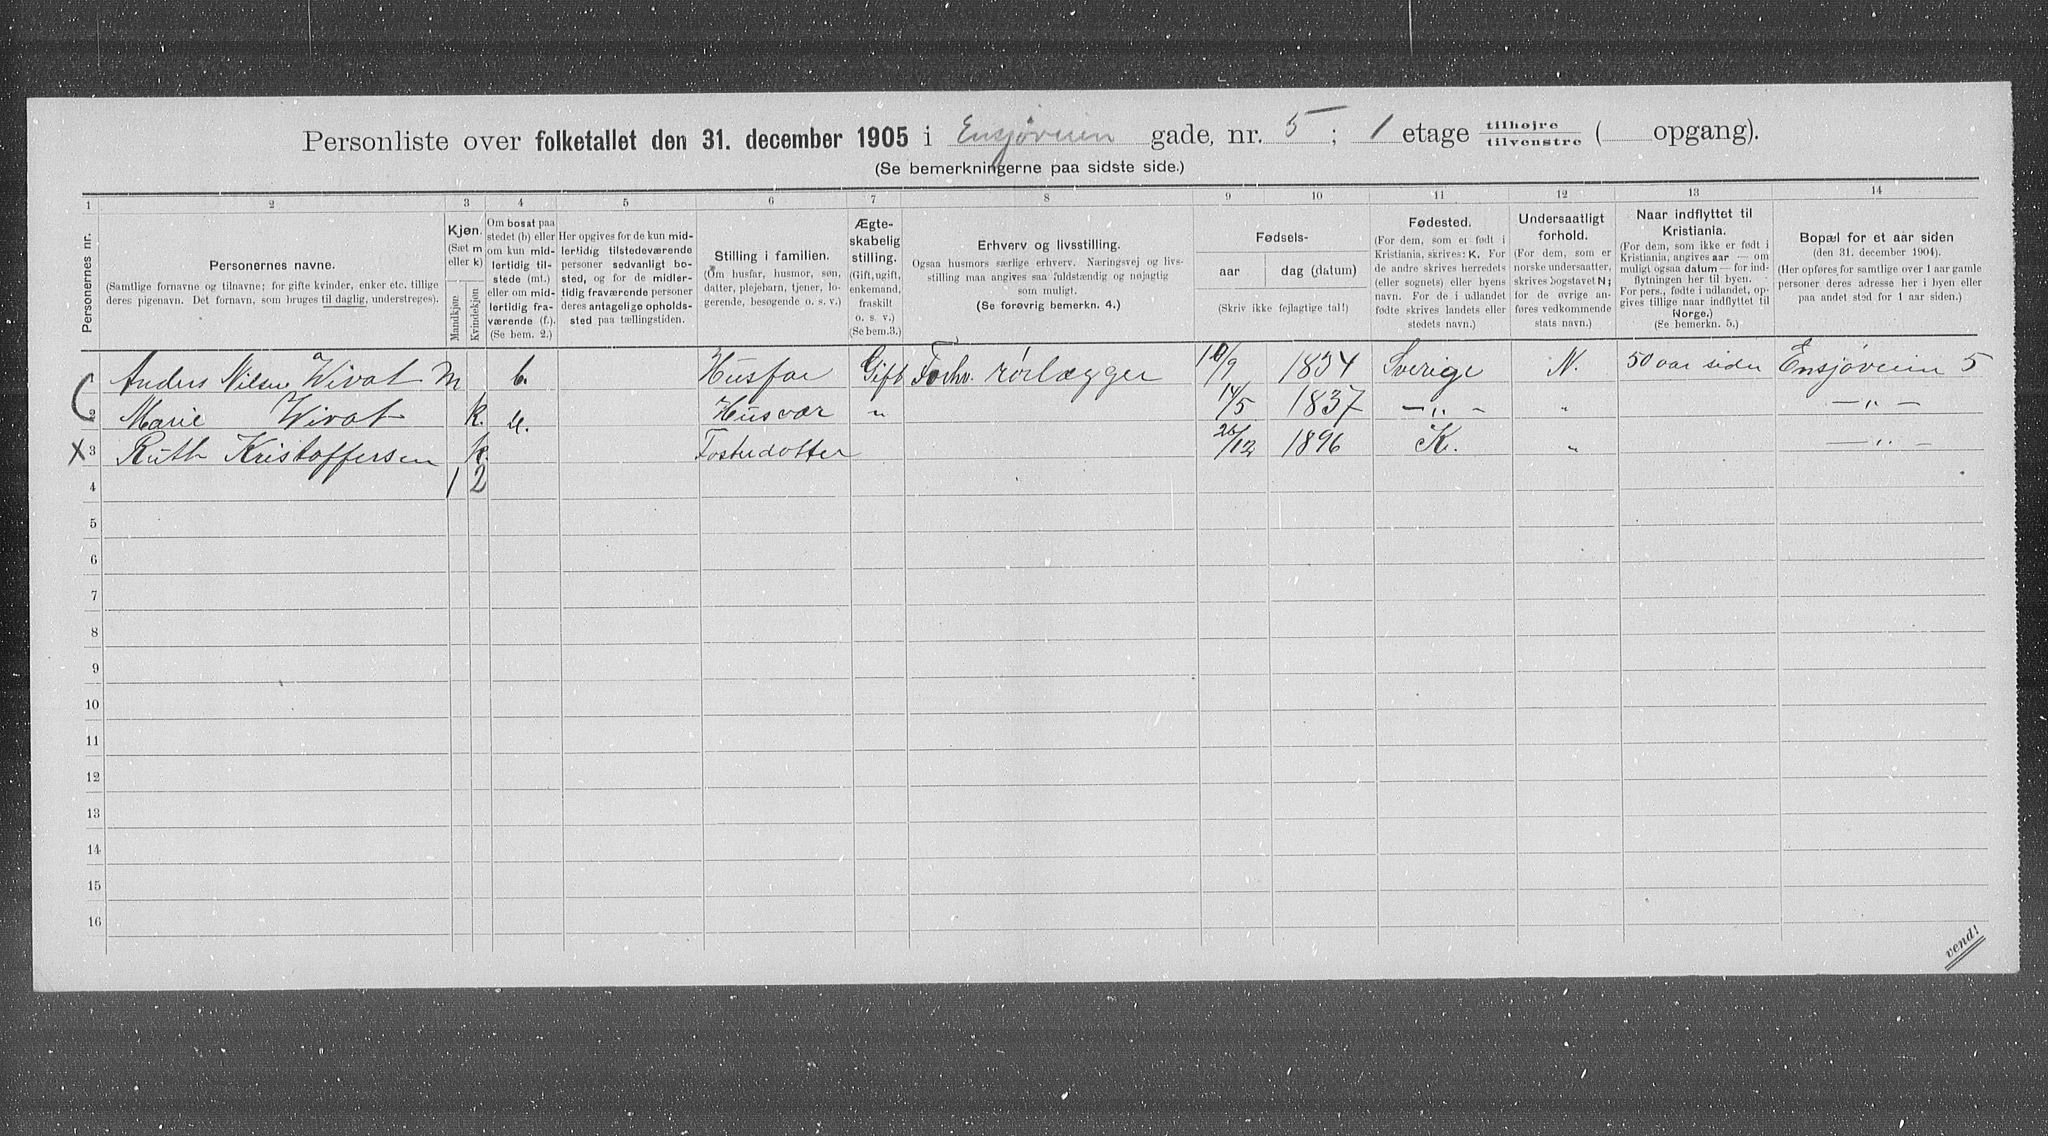 Personliste over folketallet den 31. december 1905 i Ensjøveien gade, nr. 5 ; 1 etage tilhøjre/tilvenstre ( opgang).
(Se bemerkningerne paa sidste side.)
1 2 3 4 5 6 7 8 9 10 11 12 13 14
Personernes nr.
Personernes navne.
(Samtlige fornavne og tilnavne; for gifte kvinder, enker etc. tillige
deres pigenavn. Det fornavn, som bruges til daglig, understreges).
Kjøn.
(Sæt m
eller k)
Mandkjøn.
Kvindekjøn
Om bosat paa
stedet (b) eller
om kun mid-
lertidig til-
stede (mt.)
eller om mid-
lertidig fra-
værende (f.).
(Se bem. 2.)
Her opgives for de kun mid-
lertidig tilstedeværende
personer sedvanlig bo-
sted, og for de midler-
tidig fraværende personer
deres antagelige opholds-
sted paa tællingstiden.
Stilling i familien.
(Om husfar, husmor, søn,
datter, plejebarn, tjener, lo-
gerende, besøgende o. s. v.)
Ægte-
skabelig
stilling.
(Gift, ugift,
enkemand,
fraskilt
o. s. v.)
(Se bem.3.)
Erhverv og livsstilling.
Ogsaa husmors særlige erhverv. Næringsvej og livs-
stilling maa angives saa fuldstændig og nøjagtig
som muligt.
(Se forøvrig bemerkn. 4.)
Fødsels-
aar dag (datum)
(Skriv ikke fejlagtige tal!)
Fødested.
(For dem, som er født i
Kristiania, skrives: K. For
de andre skrives herredets
(eller sognets) eller byens
navn. For de i udlandet
fødte skrives landets eller
stedets navn.)
Undersaatligt
forhold.
(For dem, som er
norske undersaatter,
skrives bogstavet N;
for de øvrige an-
føres vedkommende
stats navn.)
Naar indflyttet til
Kristiania.
(For dem, som ikke er født i
Kristiania, angives aar — om
muligt ogsaa datum — for ind-
flytningen her til byen.
For pers., fødte i udlandet, op-
gives tillige naar indflyttet til
Norge.)
(Se bemerkn. 5.)
Bopæl for et aar siden
(den 31. december 1904).
(Her opføres for samtlige over 1 aar gamle
personer deres adresse her i byen eller
paa andet sted for 1 aar siden.)
1 Anders Nilsen Wivat m b. Husfar Gift Forhv. rørlægger 10/9 1834 Sverige N. 50 aar siden Ensjøveien 5
2 Marie Wivat k. Husmor " 14/5 1837 — " — " — " —
X 3 Ruth Kristoffersen k. Fosterdotter 26/12 1896 K. " — " —
4 1 2
5
6
7
8
9
10
11
12
13
14
15
16
vend!